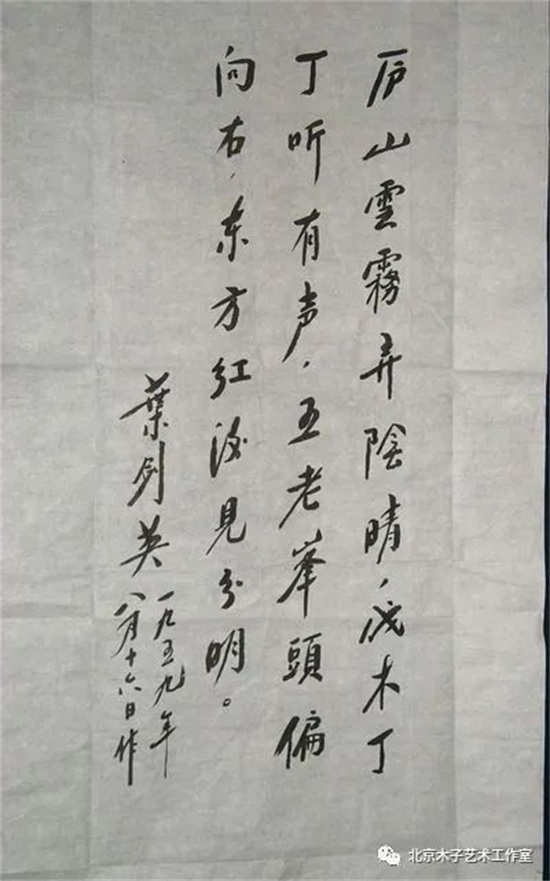 庐山雲霧弄陰晴，伐木丁
丁听有声，五老峯頭偏
向右，东方红後見分明。
葉剑英
一九五九年
八月十六日作
北京木子艺术工作室